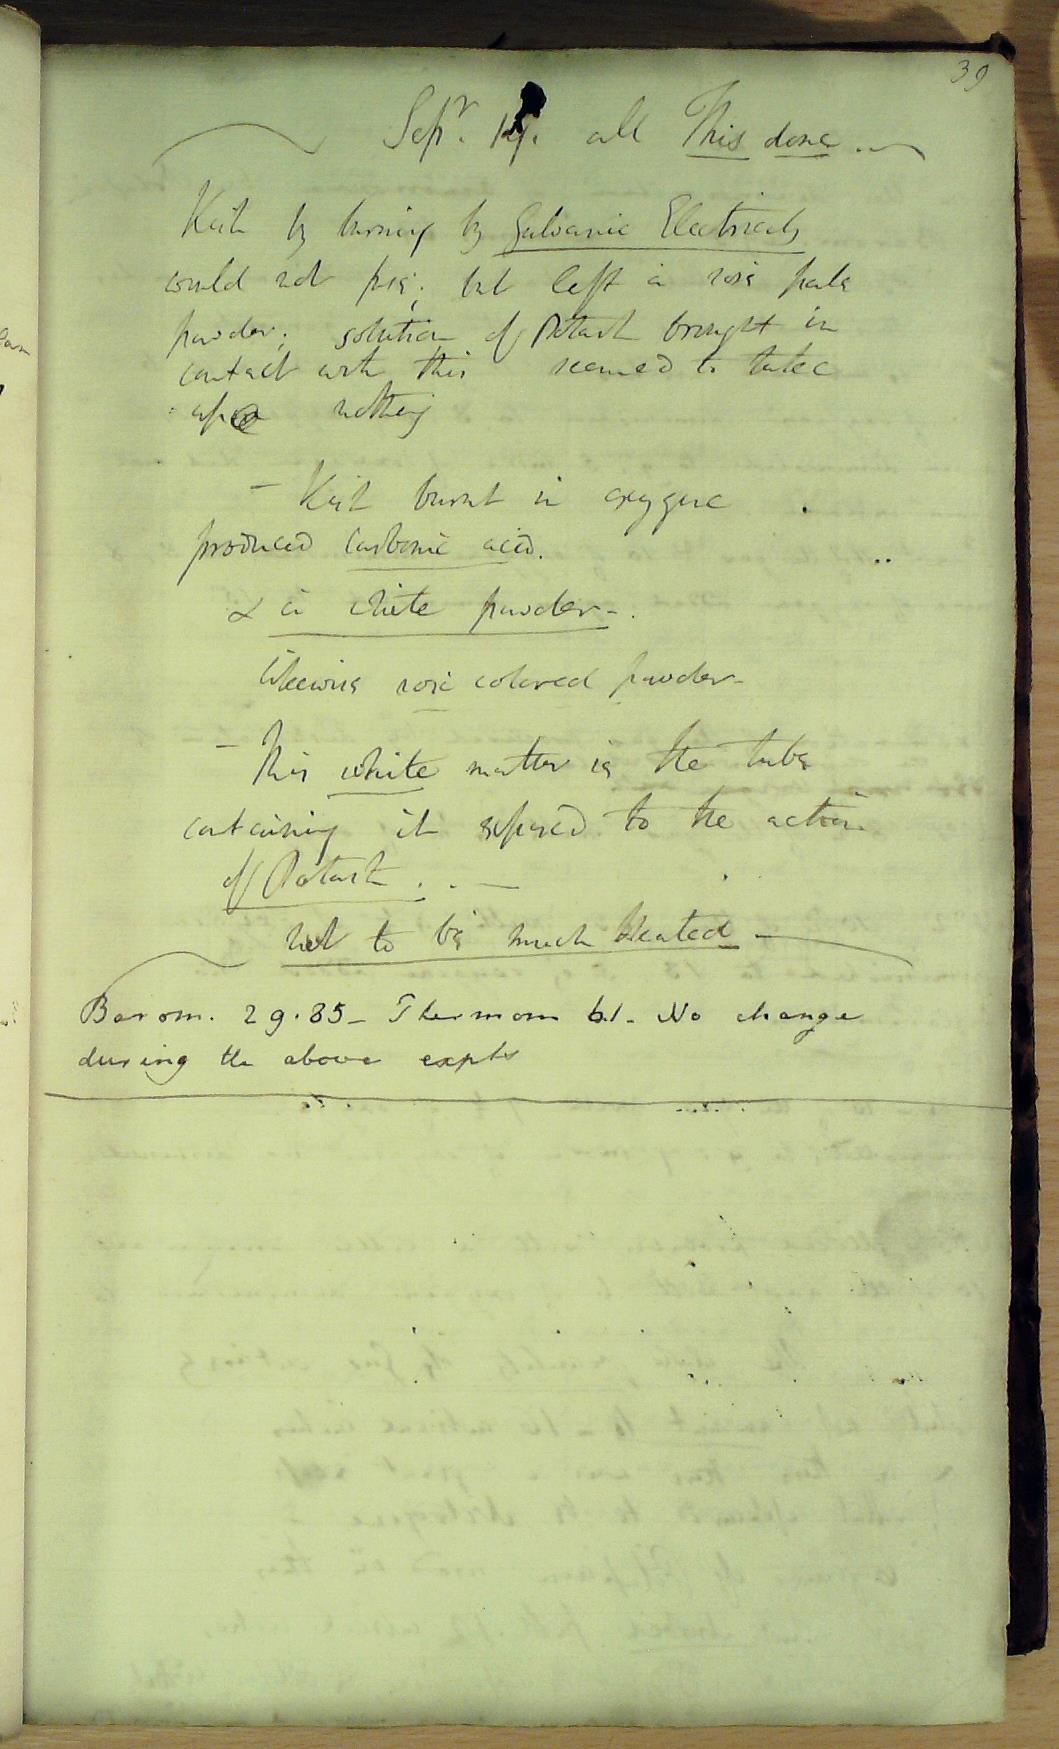 39
Sepr. all This done.
by burning by Galvanic Electricity
would not fuse; but left a rose pale
powder; solution of Potash brought in
contact with this seemed to take
up nothing
burnt in oxygene
produced carbonic acid.
& a white powder-.
likewise rose colored powder-
- This white matter is the tube
containing it exposed to the action
of Potash . . —
not to be much heated -
Barom. 29.85- Thermom 61- No change
during the above expts